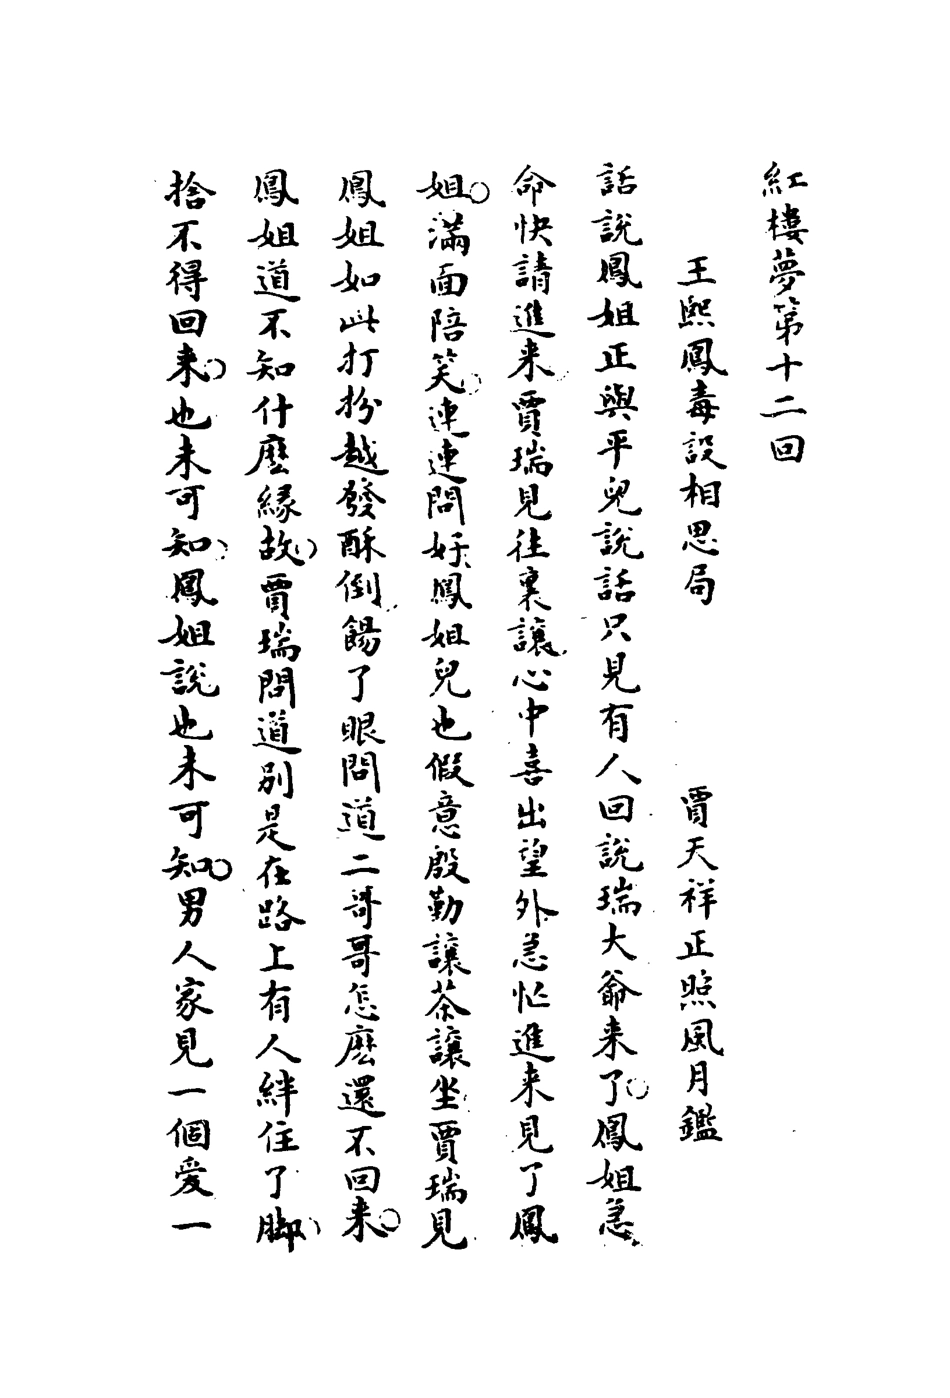 紅樓夢第十二回
王熙鳳毒設相思局　賈天祥正照風月鑑
話說鳳姐正與平兒說話只見有人回說瑞大爺来了。鳳姐急
命快請進来賈瑞見徃裏讓心中喜出望外急忙進来見了鳳
姐。滿面陪笑連連問好鳳姐兒也假意殷勤讓茶讓坐賈瑞見
鳳姐如此打扮越發酥倒餳了眼問道二哥哥怎麽還不回来。
鳳姐道不知什麽緣故。賈瑞問道別是在路上有人絆住了脚
捨不得回来。也未可知。鳳姐說也未可知。男人家見一個爱一